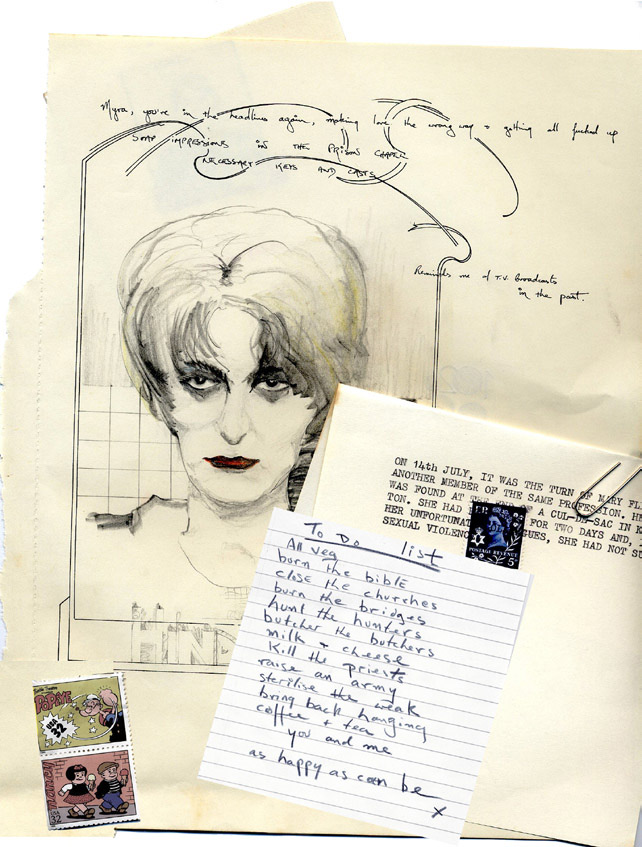 Myra, you're in the headlines again, making love the wrong way & getting all fucked up
SOAP IMPRESSIONS IN THE PRISON CHAPEL
NECESSARY KEYS AND CASTS
Reminds me of T.V. Broadcasts
in the past.
ON 14th JULY, IT WAS THE TURN OF MARY FL
ANOTHER MEMBER OF THE SAME PROFESSION. HE
WAS FOUND AT THE A CUL-DE-SAC IN K
TON. SHE HAD FOR TWO DAYS AND,
HER UNFORTUNAT GUES, SHE HAD NOT SU
SEXUAL VIOLENC
E.R.
POSTAGE REVENUE
5d
To Do list
All veg
burn the bible
close the churches
burn the bridges
hunt the hunters
butcher the butchers
milk & cheese
Kill the priests
raise an army
sterilise the weak
bring back hanging
coffee + tea
you and me
as happy as can be
x
HIND
POPEYE
USA
32
NANCY
USA 32